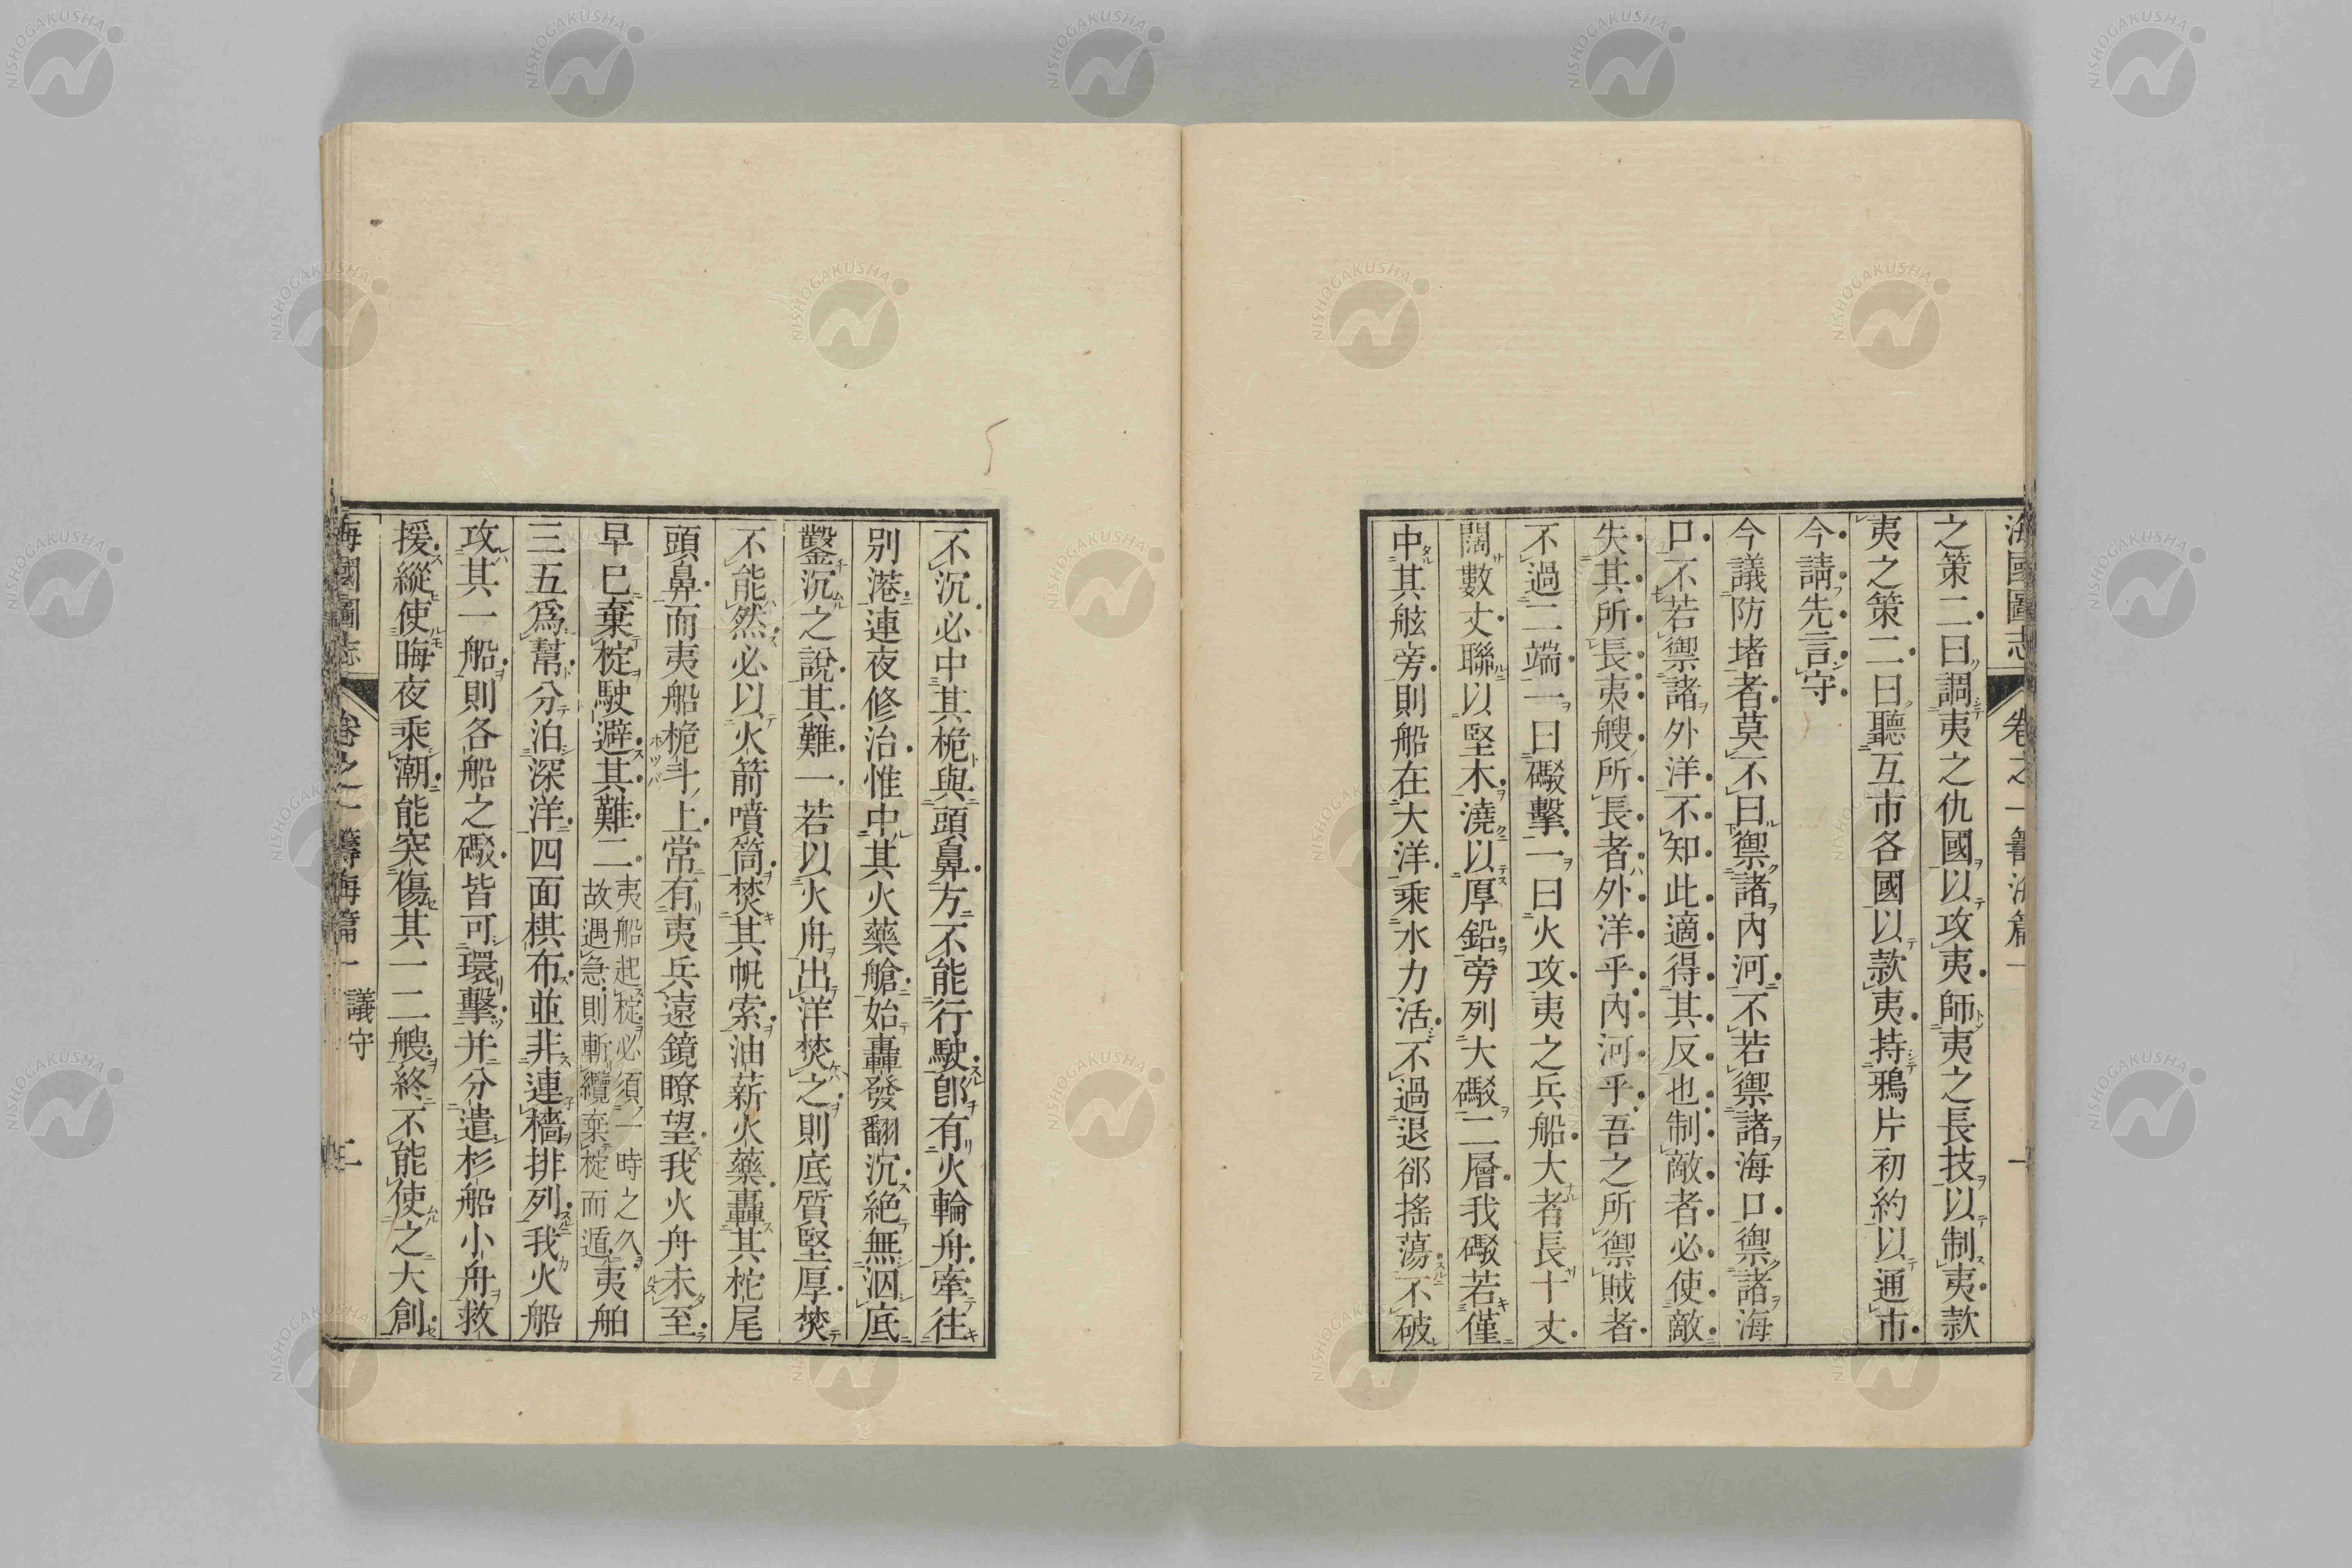 海國圖志 卷之一 籌海篇一 一
之策二曰調夷之仇國以攻夷師夷之長技以制夷款
夷之策二曰聽互市各國以款夷持鴉片初約以通市
今請先言守
今議防堵者莫不曰禦諸內河不若禦諸海口禦諸海
口不若禦諸外洋不知此適得其反也制敵者必使敵
失其所長夷艘所長者外洋乎內河乎吾之所禦賊者
不過二端一曰礮擊一曰火攻夷之兵船大者長十丈
闊數丈聯以堅木澆以厚鉛旁列大礮二層我礮若僅
中其舷旁則船在大洋乘水力活不過退郤搖蕩不破
不沉必中其桅與頭鼻方不能行駛卽有火輪舟牽往
別港連夜修治惟中其火藥艙始轟發翻沉絕無泅底
鑿沉之說其難一若以火舟出洋焚之則底質堅厚焚
不能然必以火箭噴筒焚其帆索油薪火藥轟其柁尾
頭鼻而夷船桅斗上常有夷兵遠鏡瞭望我火舟未至
早已棄椗駛避其難二夷船起椗必須一時之久故遇急則斬纜棄椗而遁夷舶
三五爲幫分泊深洋四面棋布並非連檣排列我火船
攻其一船則各船之礮皆可環擊并分遣杉船小舟救
援縱使晦夜乘潮能突傷其一二艘終不能使之大創
海國圖志 卷之一 籌海篇一 議守 二
NISHOGAKUSHA